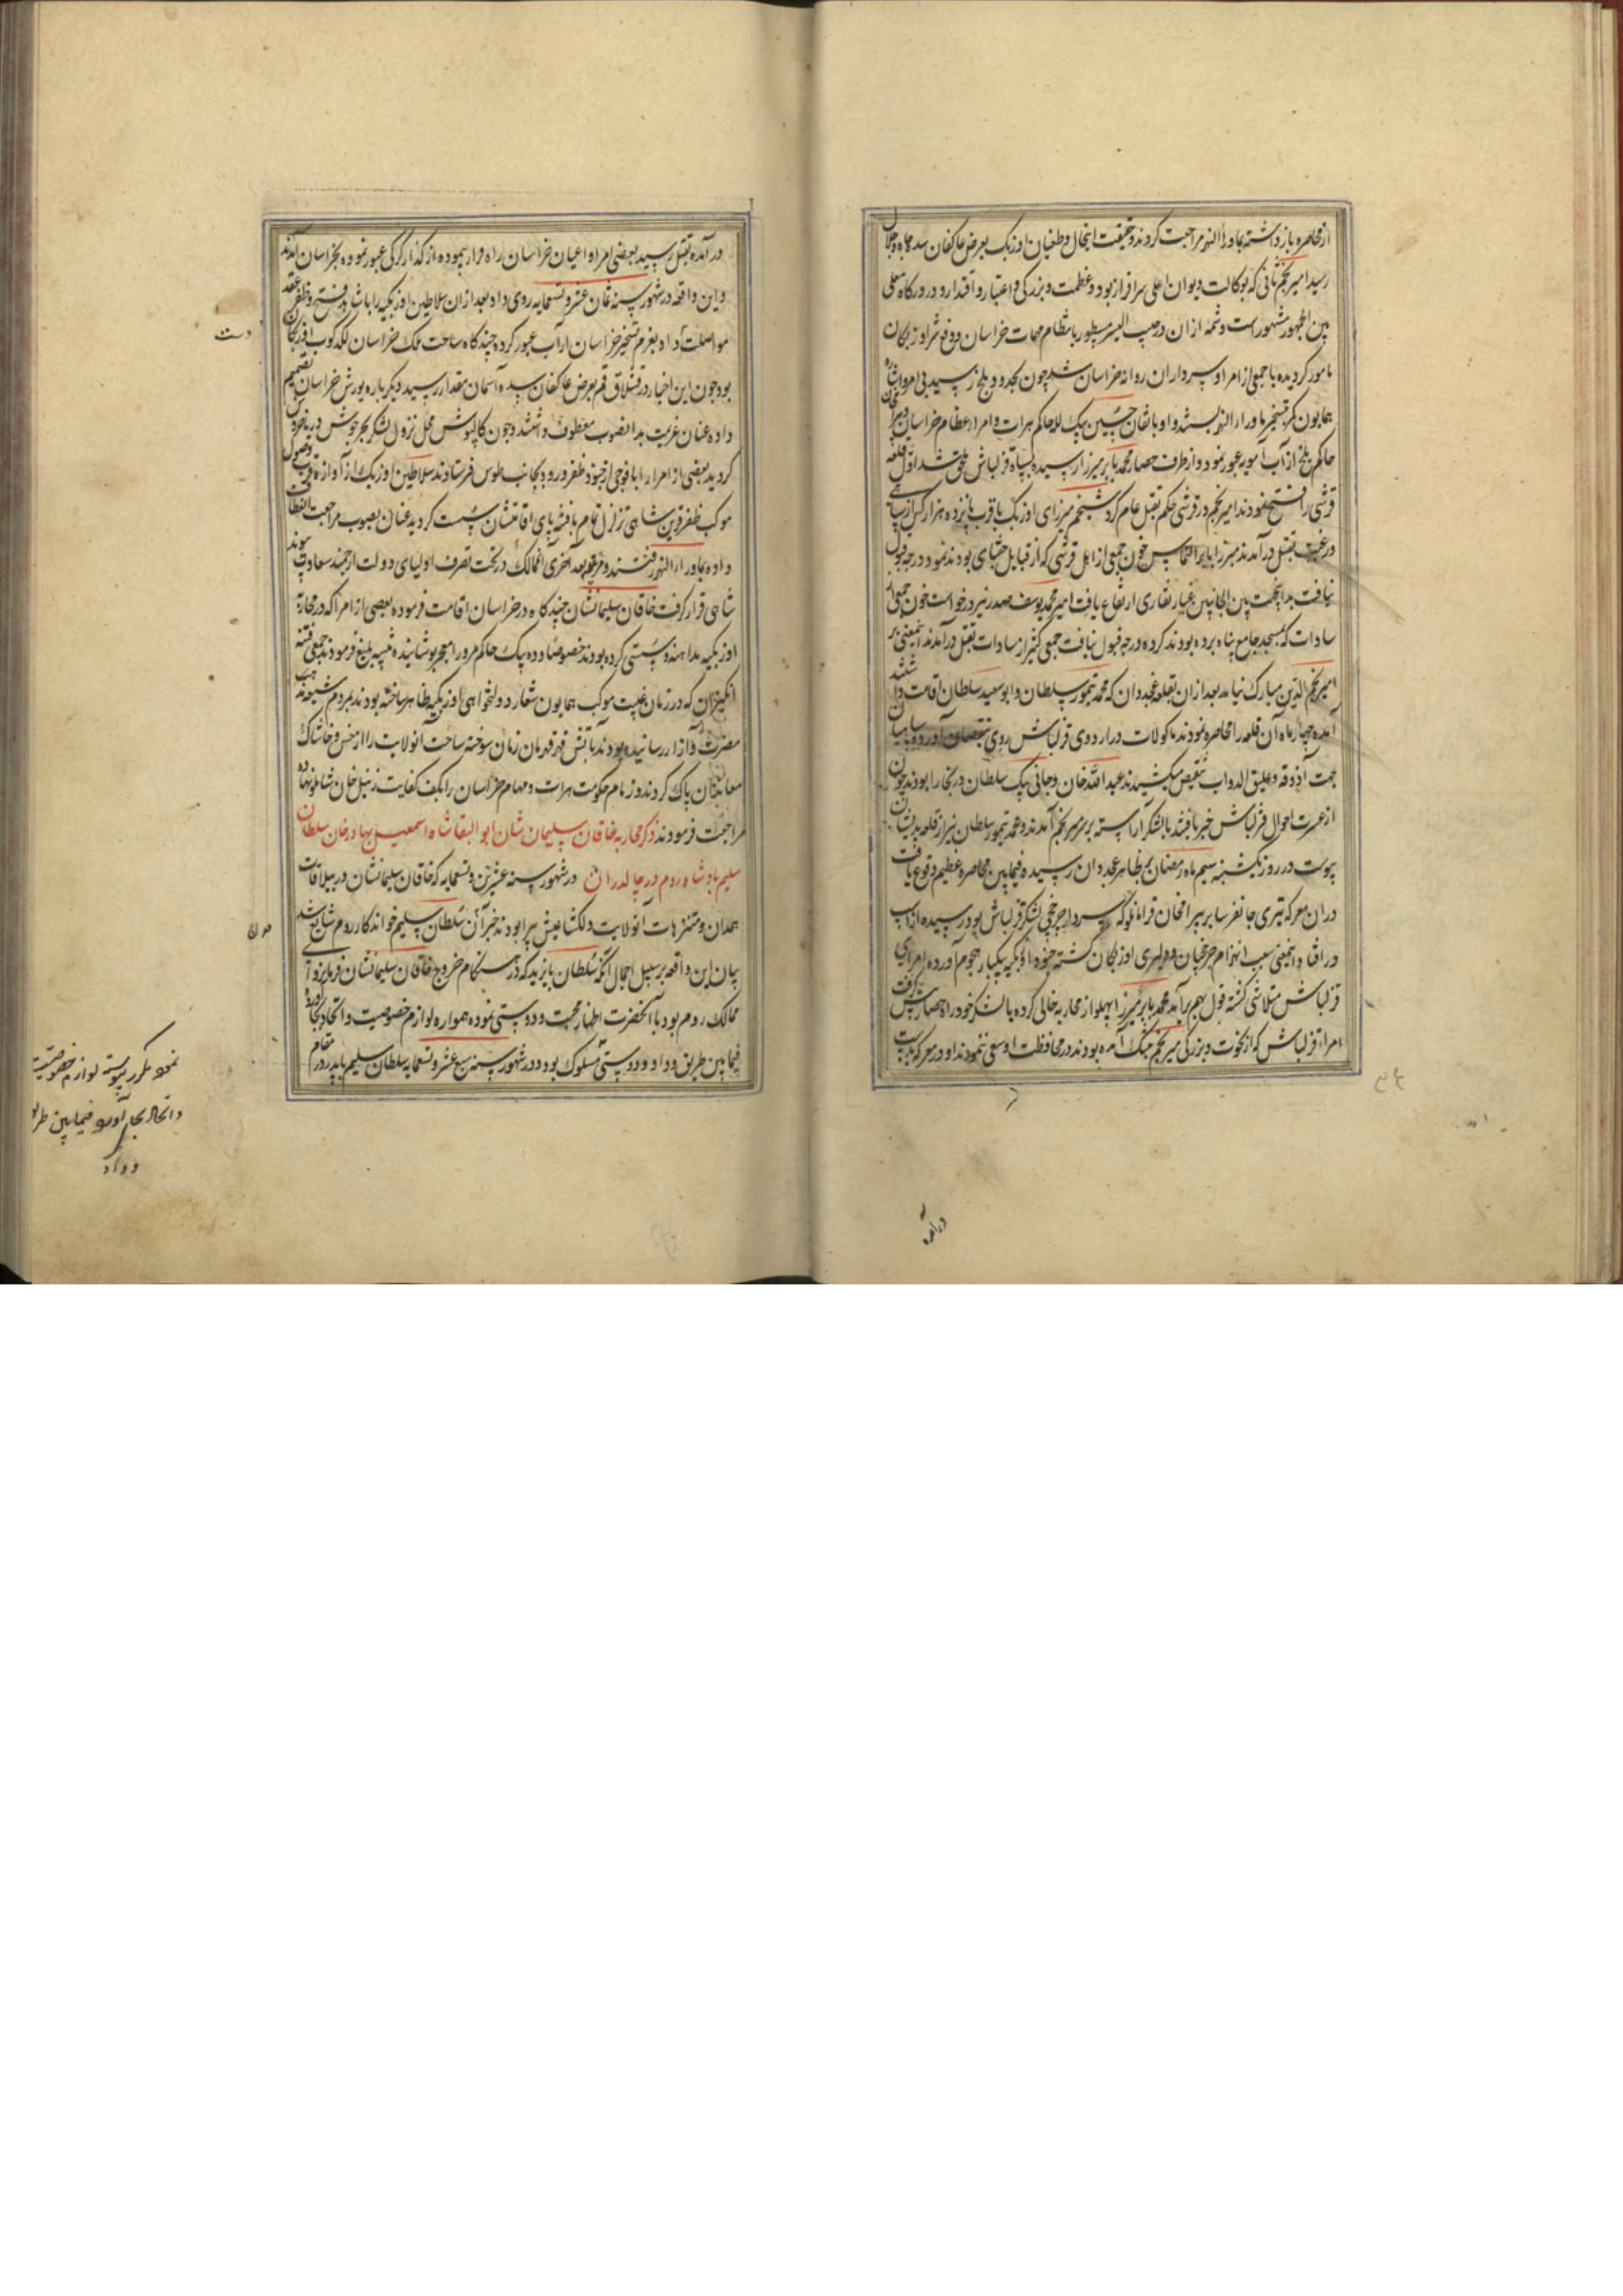 از محاصره بازداشته بماوراءالنهر مراجعت کردند و حقیقت اینحال و طغیان اوزبک بعرض عاکفان سده جاه و جلال
رسید امیر نجم ثانی که بوکالت دیوان اعلی سرافراز بود و عظمت و بزرگی و اعتبار و اقتدار او در درگاه معلی
بین الجمهور مشهور است و شمه از ان در حبیب السیر مسطور بانتظام مهمات خراسان و دفع شر اوزبکان
مامور گردیده با جمعی از امرا و سرداران روانه خراسان شد چون بحدود بلخ رسید بی امر و اشاره
همایون کمر تسخیر ماوراءالنهر بسته او باتفاق حسین بیک لله حاکم هرات و امراء عظام خراسان و بیرامخان
حاکم بلخ از آب آمویه عبور نمود و از طرف حصار محمد بابر میرزا رسیده بسپاه قزلباش ملحق شد اول قلعه
قرشی را فتح نمودند امیر نجم در قرشی حکم بقتل عام کرد شیخم میرزای اوزبک با قرب پانزده هزار کس از سپاهی
و رعیت بقتل درآمدند میرزا بابر التماس خون جمعی از اهل قرشی که از قبایل جغتای بودند نمود درجه قبول
نیافت بدانجهت بین الجانبین غبار نقاری ارتفاع یافت امیر محمد یوسف صدر نیز درخواست خون جمعی از
سادات که بمسجد جامع پناه برده بودند کرده درجه قبول نیافت جمعی کثیر از سادات بقتل درآمدند اینمعنی بر
امیر نجم الدین مبارک نیامد بعد از ان بقلعه غجدوان که محمد تیمور سلطان و ابوسعید سلطان اقامت داشتند
آمده چهار ماه آن قلعه را محاصره نمودند ماکولات در اردوی قزلباش روی بنقصان آورده سپاهیان
جهت آذوقه و علیق الدواب تنقیص میکشیدند عبدالله خان و جانی بیک سلطان در بخارا بودند چون
از عسرت احوال قزلباش خبر یافتند با لشکر آراسته بر سر میر نجم آمدند و محمد تیمور سلطان نیز از قلعه بدیشان
پیوست در روز یکشنبه سیم ماه رمضان بظاهر غجدوان رسیده فیمابین محاصره عظیم وقوع یافت
در ان معرکه تیری جانفرسا بر بیرامخان قرامانلو که سردار چرخچی لشکر قزلباش بود رسیده از اسپ
درافتاد و اینمعنی سبب انهزام چرخچیان و دلیری اوزبکان گشته جنود اوزبکیه بیکبار هجوم آورده امرای
قزلباش متلاشی گشته قول بهم برآمد محمد بابر میرزا پهلو از محاربه خالی کرده با لشکر خود راه حصار پیش گرفت
امراء قزلباش که از نخوت و بزرگی میر نجم بتنگ آمده بودند در محافظت او سعی ننمودند او در معرکه بدست
درآمده
درآمده بقتل رسید بعضی امرا و اعیان خراسان راه فرار پیموده از گذار کرکی عبور نموده بخراسان آمدند
و این واقعه در شهور سنه ثمان عشر و تسعمایه روی داد بعد از ان سلاطین اوزبکیه را با شاهد فتح و ظفر عقد
مواصلت دست داد بعزم تسخیر خراسان از آب عبور کرده چندگاه ساحت ملک خراسان لگدکوب اوزبکان
بود چون این اخبار در قشلاق قم بعرض عاکفان سده آسمان مقدار رسید دیگرباره یورش خراسان تصمیم
داده عنان عزیمت بدانصوب معطوف داشتند و چون کالپوش محل نزول لشکر بحر جوش دریا خروش
گردید بعضی از امرا را با فوجی از جنود ظفر ورود بجانب طوس فرستادند سلاطین اوزبک از آوازه قرب وصول
موکب ظفر قرین شاهی تزلزل تمام یافته پای اقامتشان سست گردید عنان بصوب مراجعت انعطاف
داده بماوراءالنهر رفتند و مرة بعد اخری آنممالک در تحت تصرف اولیای دولت ارجمند سعادت پیوند
شاهی قرار گرفت خاقان سلیمانشان چندگاه در خراسان اقامت فرموده بعضی از امرا که در محاربه
اوزبکیه مداهنه و سستی کرده بودند خصوصا دده بیک حاکم مرو را معجر پوشانیده تنبیه بلیغ فرمودند جمعی فتنه
انگیزان که در زمان غیبت موکب همایون شعار دولتخواهی اوزبکیه ظاهر ساخته بودند بمردم شیعه مذهب
مضرت و آزار رسانیده بودند باتش قهر قهرمان زمان سوخته ساحت آنولایت را از خس و خاشاک
معاندان پاک کردند و زمام حکومت هرات و مهام خراسان را بکف کفایت زینل خان شاملو نهاده
مراجعت فرمودند ذکر محاربه خاقان سلیمان شان ابوالبقا شاه اسمعیل بهادرخان سلطان
سلیم پادشاه روم در چالدران در شهور سنه عشرین و تسعمایه که خاقان سلیمانشان در ییلاقات
همدان و متنزهات آنولایت دلگشا عیش پیرا بودند خبر آمدن سلطان سلیم خواندکار روم شایع شد
بیان این واقعه بر سبیل اجمال آنکه سلطان بایزید که در هنگام خروج خاقان سلیمانشان فرمانروای
ممالک روم بود با آنحضرت اظهار محبت و دوستی نموده همواره لوازم خصوصیت و اتحاد بجا آورده
فیمابین طریق وداد و دوستی مسلوک بود و در شهور سنه سبع عشر و تسعمایه سلطان سلیم با پدر در مقام
دست
مدن
نموده مکرر پیوسته لوازم خصوصیت
و اتحاد بجا آورده فیمابین طریق
وداد